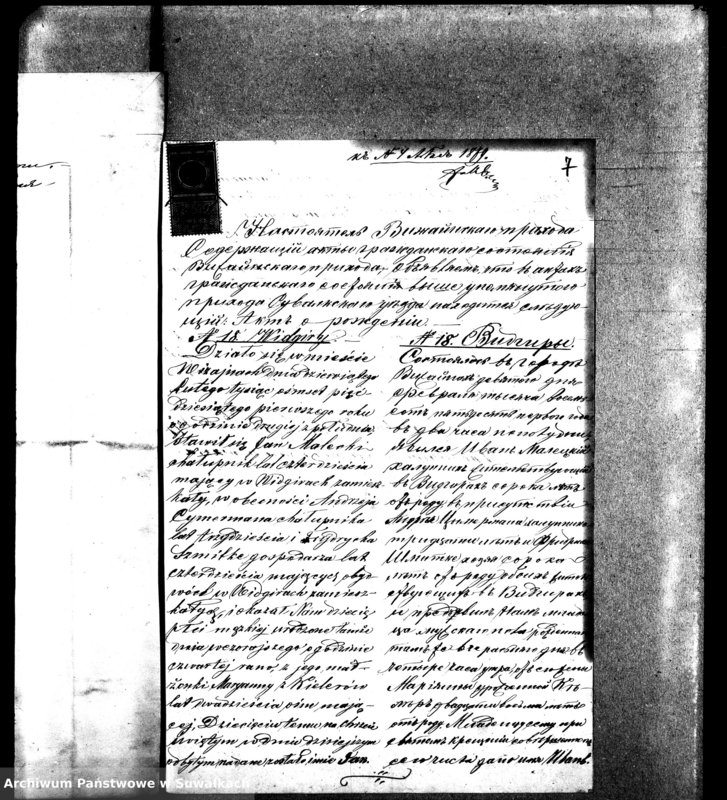 къ № 4 Алв. 18
7
Настоятель Вижайнскаго прихода
Содержащій акты гражданскаго состоянія
Вижайнскаго прихода, объявляетъ что въ актахъ
гражданскаго состоянія выше упомянутого
прихода Сувалкскаго уѣзда находится слѣдую-
щій: Актъ о рожденіи.
№ 18. Widgiry.
Działo się w mieście
Wiżajnach dnia dziewiątego
Lutego tysiąc ośmset pięć-
dziesiątego pierwszego roku
o godzinie drugiéj z południa
Stawił się Jan Malecki
chałupnik lat czterdzieście
mający w Widgirach zamiesz-
kały, w obecności Andrzeja
Cymermana chałupnika
lat trzydzieście i Frydrycha
Szmitke gospodarza lat
czterdzieście mających oby-
dwóch w Widgirach zamiesz-
kałych, i okazał Nam dziecię
płci męzkiéj urodzone tamże
dnia wczorajszego o godzinie
czwartéj rano, z jego mał-
żonki Maryanny z Kielerów
lat dwadzieścia ośm mają-
céj, Dziecięciu temu na Chrzcie
świętym w dniu dzisiejszym
odbytym nadane zostało imie Jan.
№ 18. Видгиры
Состоялось въ городѣ
Вижайнахъ девятаго дня
февраля тысяча восемь-
сотъ пятьдесятъ перваго года
въ два часа пополудни
Явился Иванъ Малецкій
халупникъ жительствующій
въ Видгирахъ сорока лѣтъ
отъ роду въ присутствіи
Андрея Цимермана халупника
тридцати лѣтъ и Фридриха
Шмитке хозяина сорока
лѣтъ отъ роду обоихъ жител-
ствующихъ въ Видгирахъ
и предъявилъ Намъ младен-
ца мужскаго пола родившагося
тамже вчерашняго дня въ
четыре часа утра, отъ его жены
Маріянны урожденной Ки-
леръ двадцати восьми лѣтъ
отъ роду. Младенцу сему при
святомъ крещеніи совершенномъ
сего числа дано имя Иванъ.
Archiwum Państwowe w Suwałkach